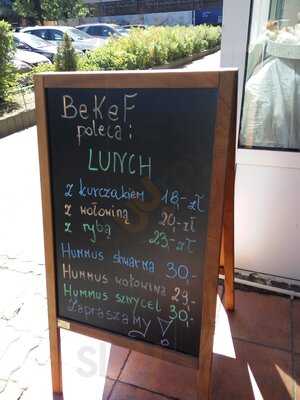 BeKeF
poleca:
LUNCH
z kurczakiem 18,-zł
z wołowiną 20,-zł
z rybą 23,-zł
HUMMUS shwarma 30,-
HUMMUS wołowina 29,-
HUMMUS sznycel 30,-
Zapraszamy!